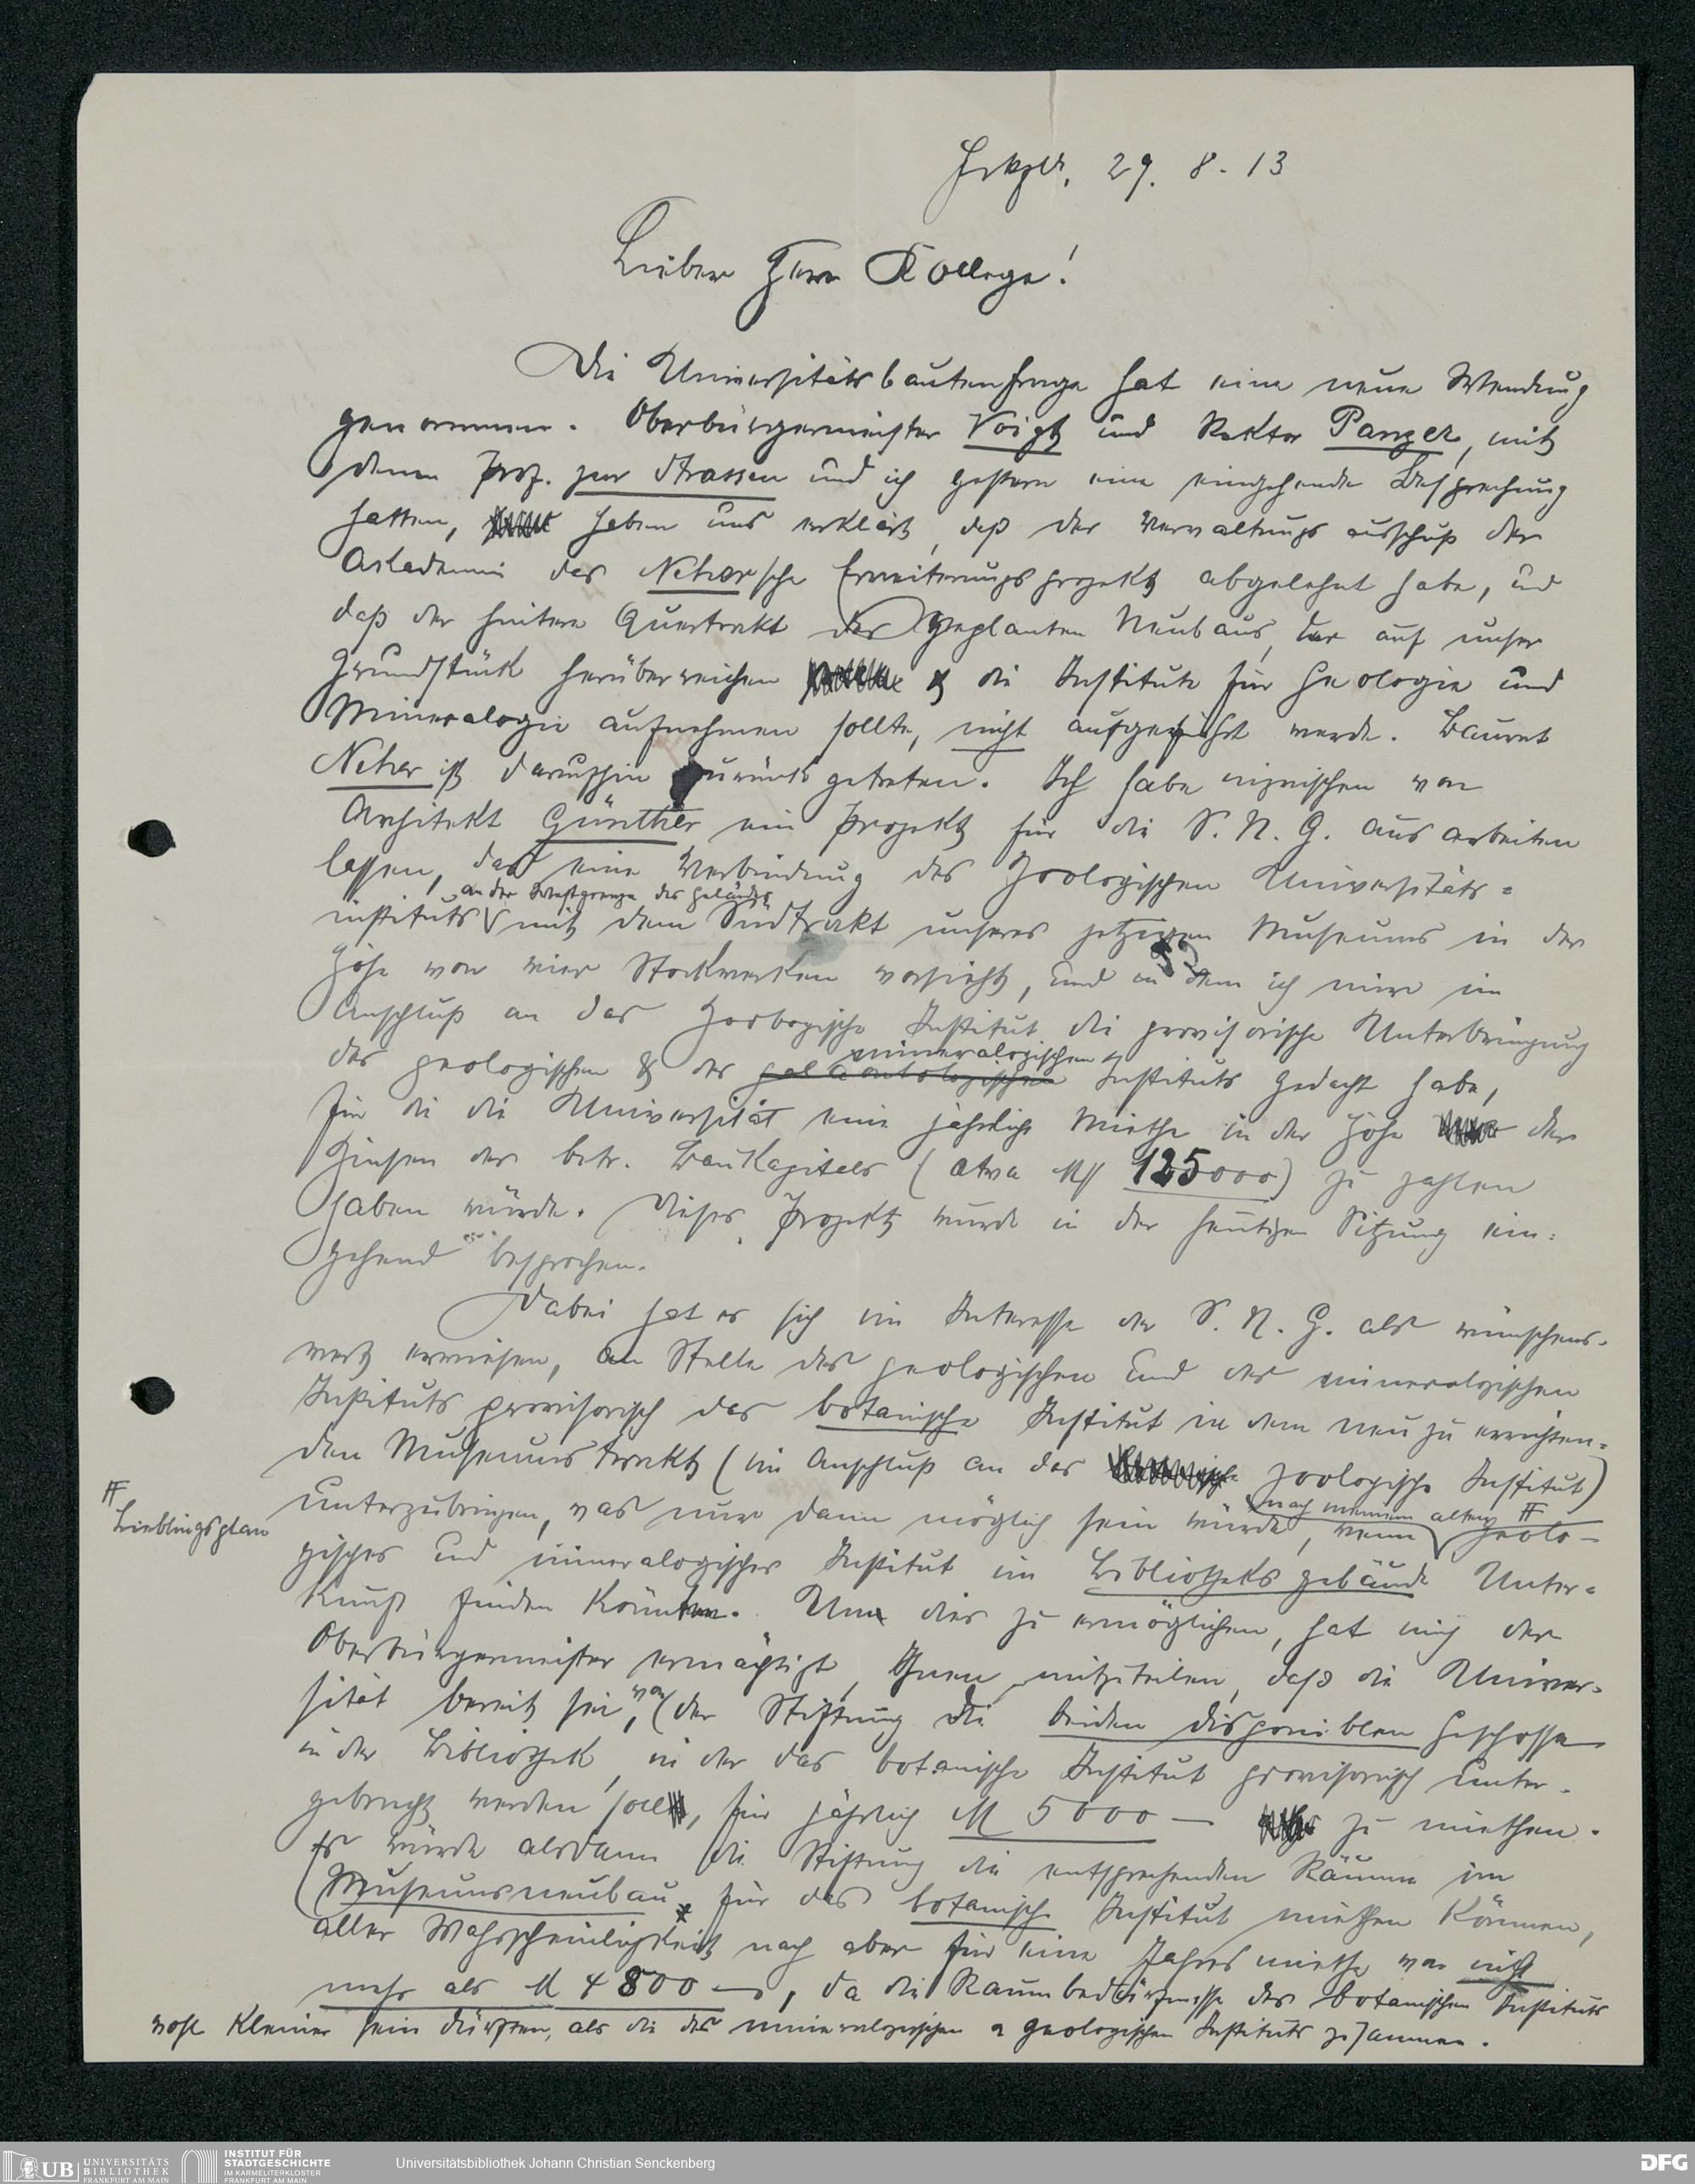 29. 8. 13
Lieber Herr Kollege!
Die Universitätsbautenfrage hat eine neue Wendung
genommen. Oberbürgermeister Voigt und Rektor Panzer, mit
denen Prof. zur Strassen und ich gestern eine eingehende Besprechung
hatten, haben uns erklärt, daß der Verwaltungsausschuß der
Akademie das Nehersche Erweiterungsprojekt abgelehnt habe, und
daß der hintere Quertrakt des geplanten Neubaus, der auf unser
Grundstück herüberreichen & die Institute für Geologie und
Mineralogie aufnehmen sollte, nicht aufgeführt werde. Baurat
Neher ist daraufhin zurückgetreten. Ich habe inzwischen von
Architekt Günther ein Projekt für die S. N. G. ausarbeiten
lassen, das eine Verbindung des Zoologischen Universitäts=
an der Westgrenze des Geländes
instituts mit dem Südtrakt unseres jetzigen Museums in der
Höhe von vier Stockwerken vorsieht, und in dem ich mir im
Anschluß an das Zoologische Institut die provisorische Unterbringung
mineralogischen
des geologischen & des palaeontologischen Instituts gedacht habe,
für die die Universität eine jährliche Miethe in der Höhe der
Zinsen des betr. Baukapitals (etwa M 125000) zu zahlen
haben würde. Dieses Projekt wurde in der heutigen Sitzung ein=
gehend besprochen.
Dabei hat es sich im Interesse der S. N. G. als wünschens-
wert erwiesen, an Stelle des geologischen und des mineralogischen
Instituts provisorisch das botanische Institut in dem neu zu errichten=
den Museumstrakt (im Anschluß an das zoologische Institut)
unterzubringen, was nur dann möglich sein würde, wenn nach meinem alten # geolo-
# Lieblingsplan
gisches und mineralogisches Institut im Bibliotheksgebäude Unter=
kunft finden könnten. Um dies zu ermöglichen, hat mich der
Oberbürgermeister ermächtigt, Ihnen mitzuteilen, daß die Univer=
sität bereit sei, von der Stiftung die beiden disponiblen Geschosse
in der Bibliothek, in der das botanische Institut provisorisch unter-
gebracht werden soll, für jährlich M 5000 — zu miethen.
Es würde alsdann die Stiftung die entsprechenden Räume im
Museumsneubau für das botanische Institut miethen können,
aller Wahrscheinlichkeit nach aber für eine Jahresmiethe von nicht
mehr als M 4800 —, da die Raumbedürfnisse des botanischen Instituts
wohl kleiner sein dürften, als die des mineralogischen & geologischen Instituts zusammen.
UB UNIVERSITÄTS
BIBLIOTHEK
FRANKFURT AM MAIN
INSTITUT FÜR
STADTGESCHICHTE
IM KARMELITERKLOSTER
FRANKFURT AM MAIN
Universitätsbibliothek Johann Christian Senckenberg
DFG